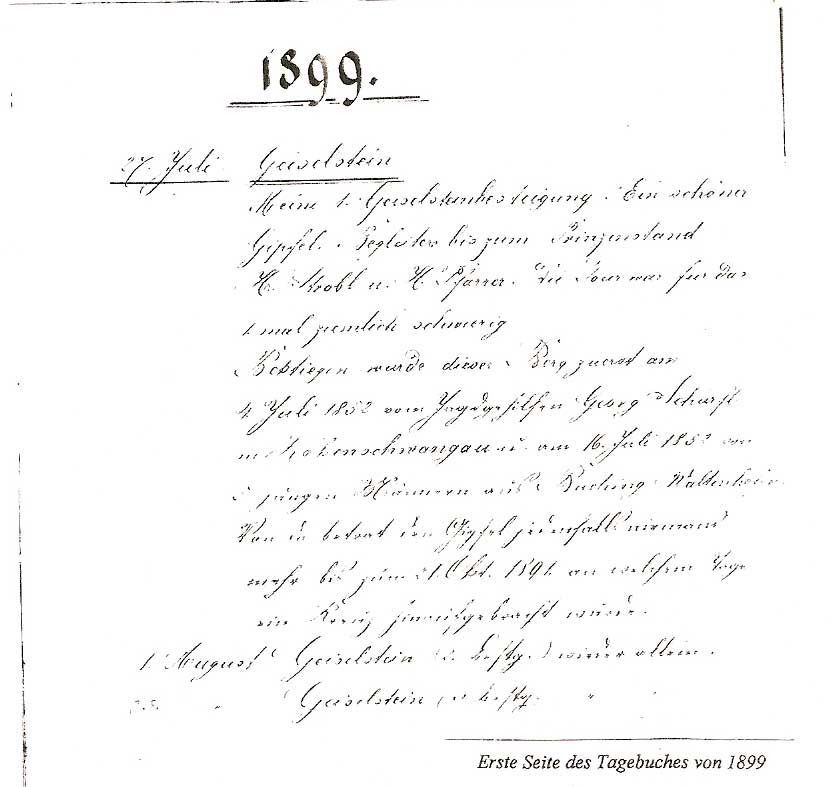 1899.
27. Juli Geiselstein
Meine 1. Geiselsteinbesteigung. Ein schöner
Gipfel. Begleiter bis zum Prinzenstand
H. Krobl u. H. Pfarrer. Die Tour war für das
1. mal ziemlich schwierig
Bestiegen wurde dieser Berg zuerst am
4. Juli 1852 vom Jagdgehilfen Georg Scharfl
in Hohenschwangau u. am 16. Juli 1852 von
jungen Männern aus Buching
Von da betrat den Gipfel jedenfalls niemand
mehr bis zum 21. Okt. 1891 an welchem Tage
ein Kreuz hinaufgebracht wurde.
1. August Geiselstein (2. Bestg.) wieder allein.
" Geiselstein Bestg. "
Erste Seite des Tagebuches von 1899